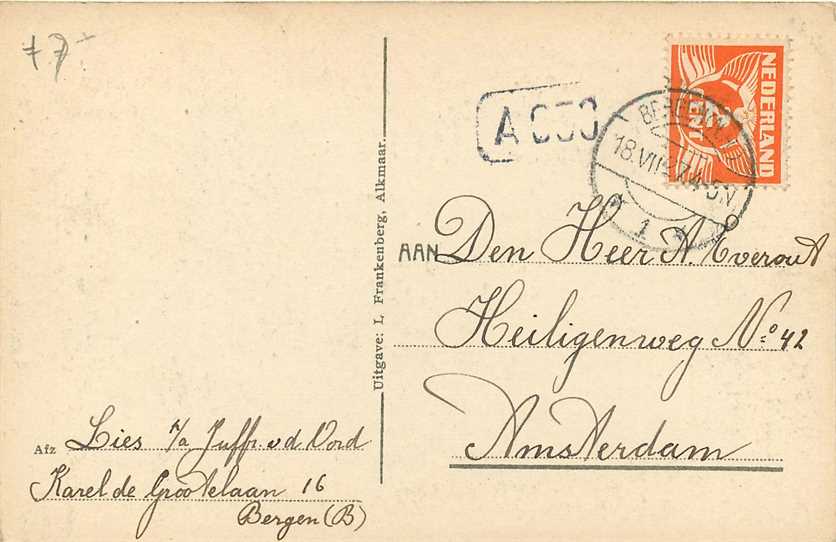 77
A 050
NEDERLAND
CENT
BERGEN
18.VII 7.4-5N
1
AAN Den Heer A. Overout
Heiligenweg No. 42
Amsterdam
Uitgave: L. Frankenberg, Alkmaar.
Afz Lies p/a Juffr. v d Oord
Karel de Grootelaan 16
Bergen (B)